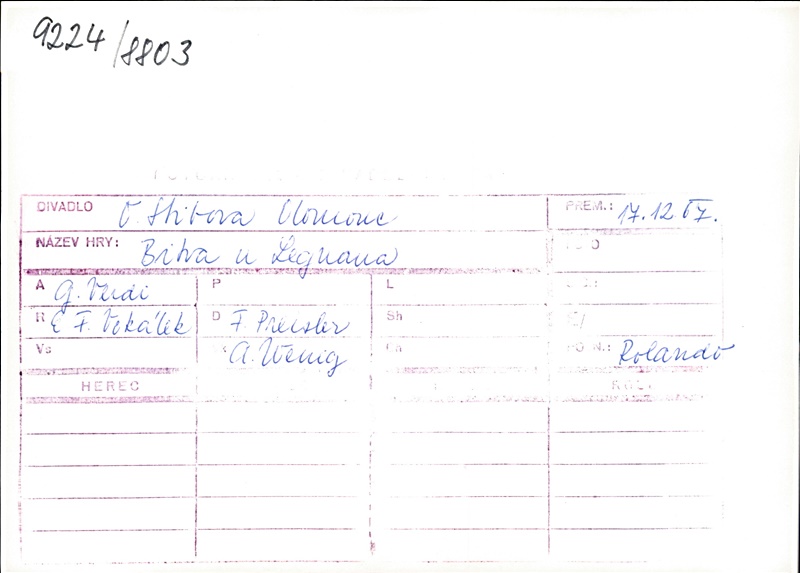 9224/8803
DIVADLO O. Stibora Olomouc PREM.: 17.12 67.
NÁZEV HRY: Bitva u Legnana
A G. Verdi P L
R E. F. Vokálek D F. Preisler Sh
Vs A. Wenig Rolando
HEREC